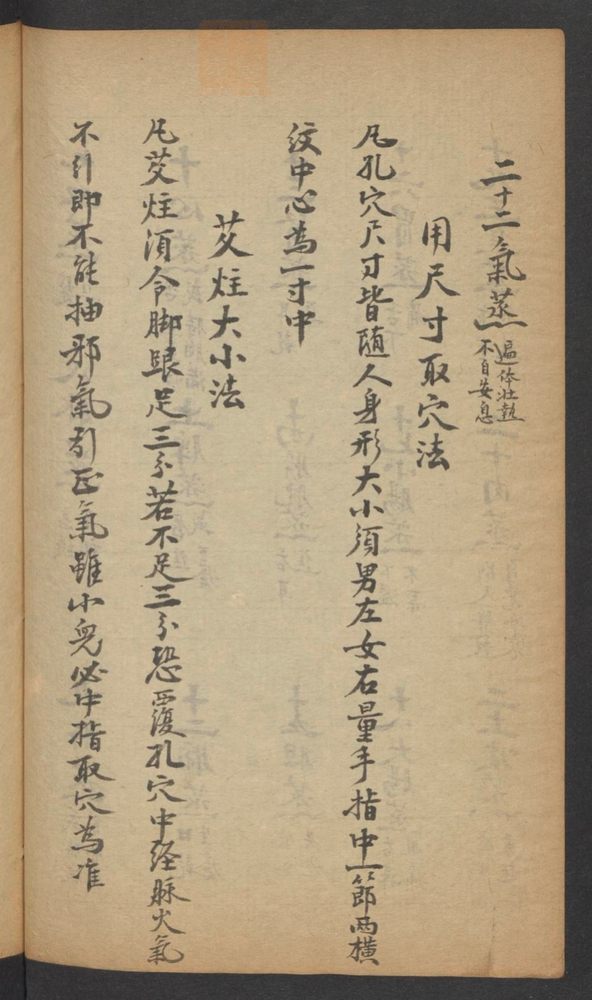 二十二氣蒸 遍体壮熱
不自安息
用尺寸取穴法
凡孔穴尺寸皆隨人身形大小須男左女右量手指中一節兩橫
紋中心為一寸中
艾炷大小法
凡艾炷須令脚跟足三分若不足三分恐覆孔穴中経脉火氣
不引即不能抽邪氣引正氣雖小兒必中指取穴為准